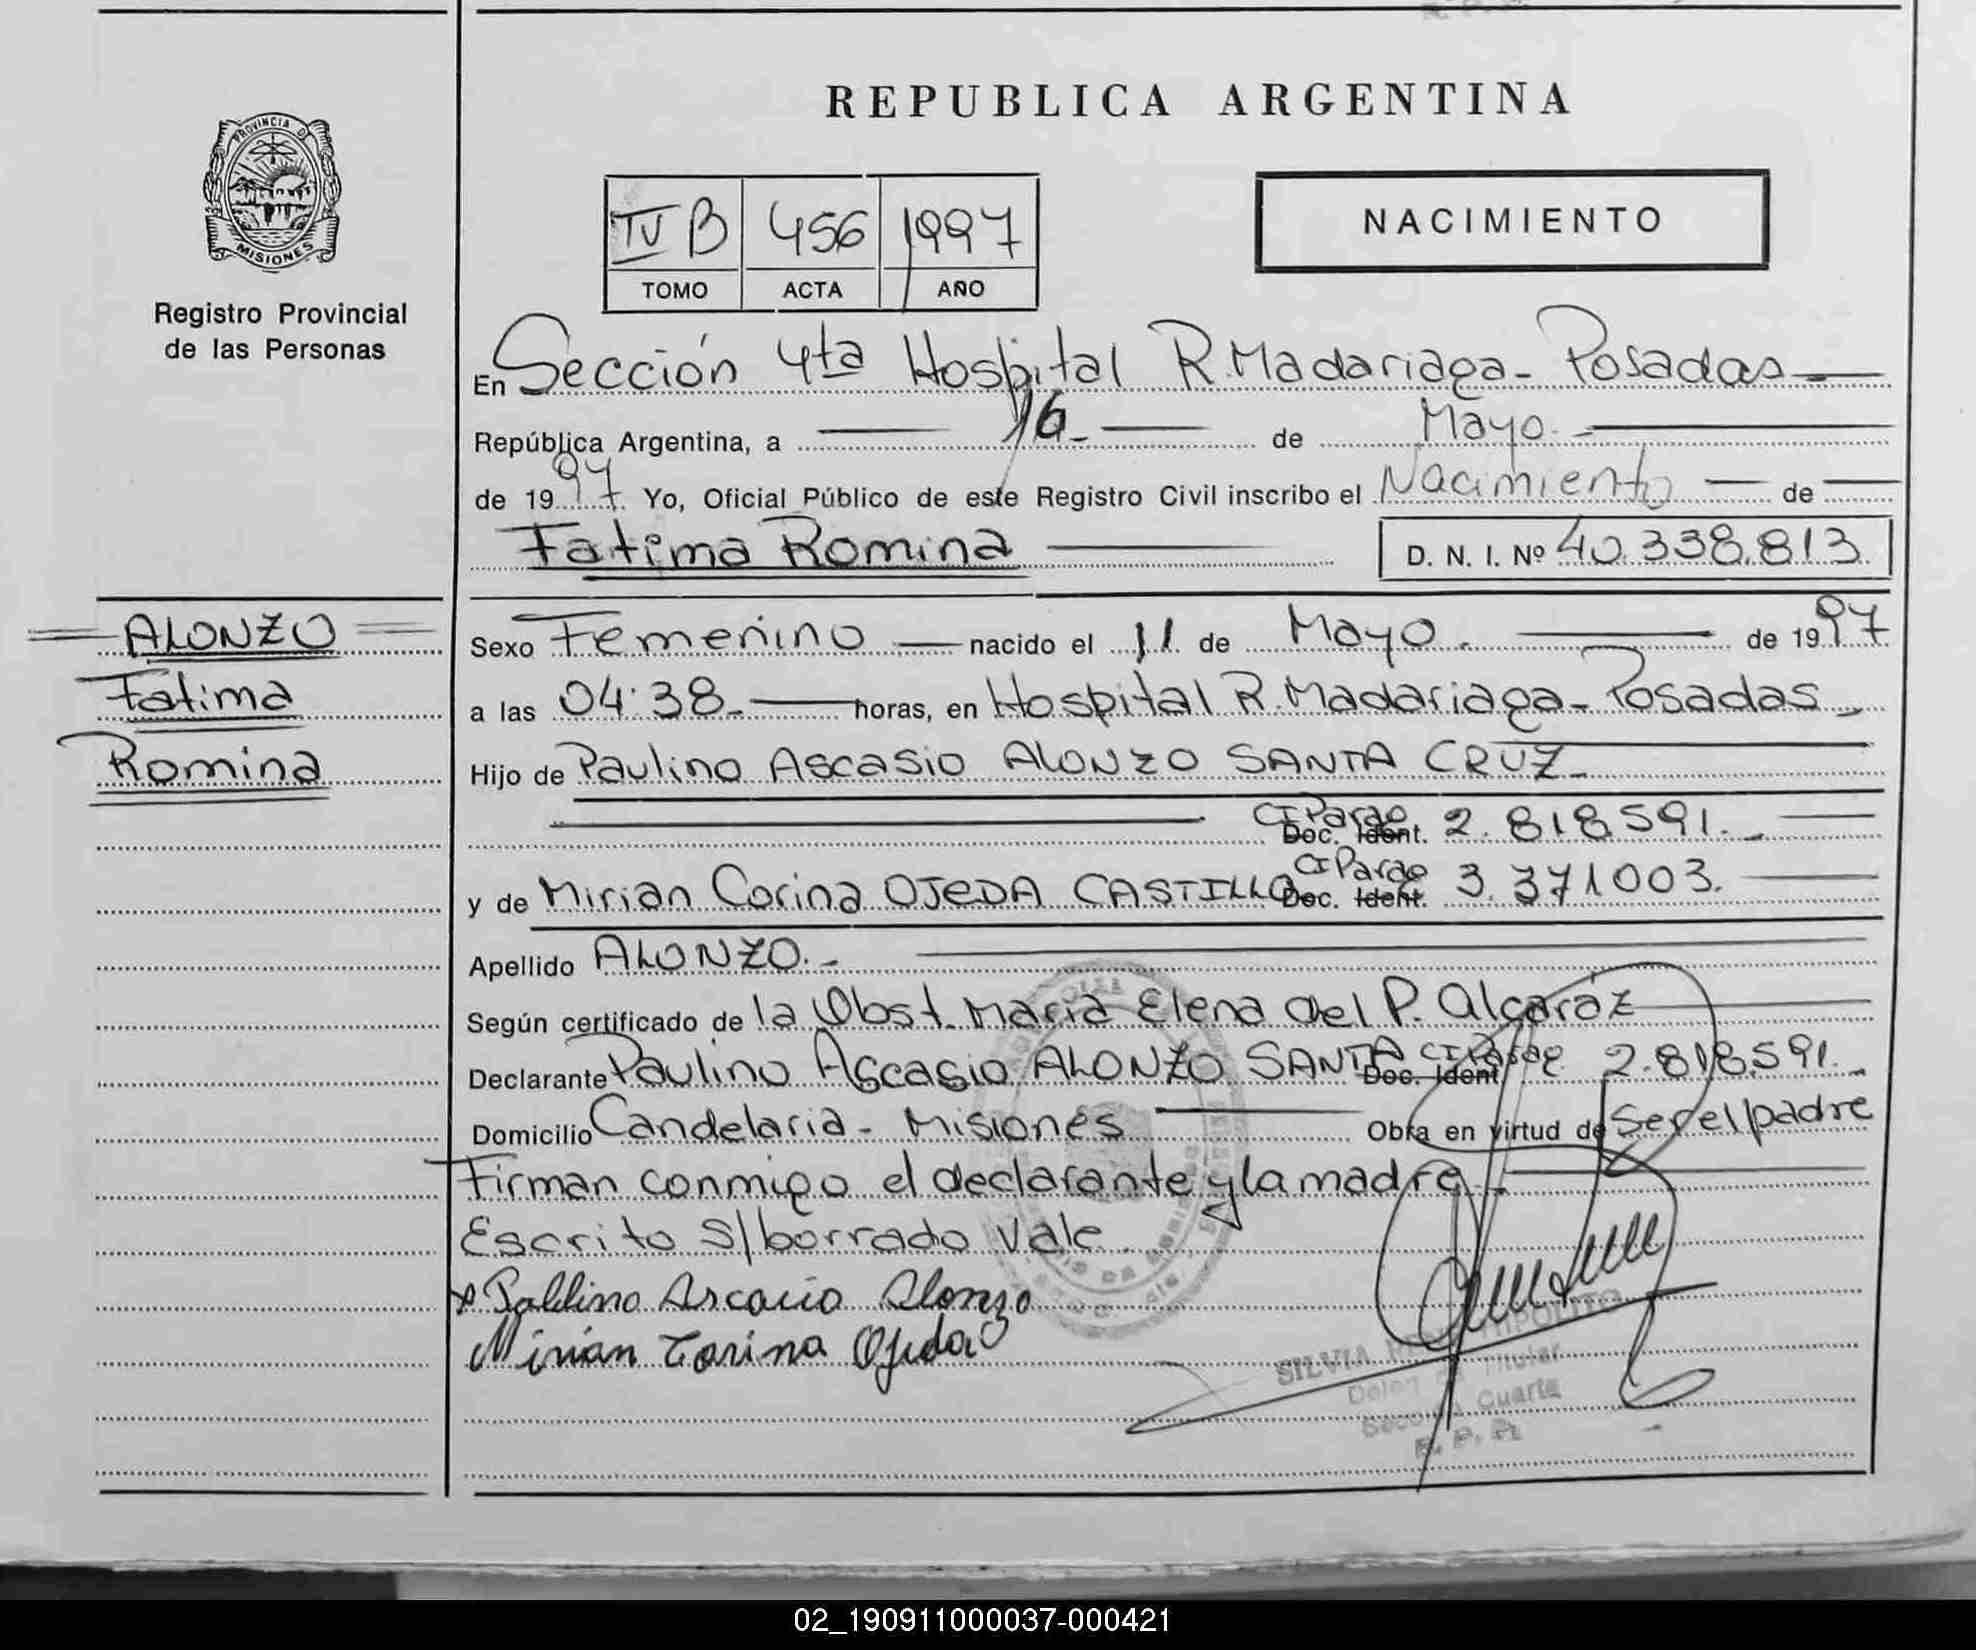 REPUBLICA ARGENTINA
PROVINCIA DE
MISIONES
Registro Provincial
de las Personas
IV B 456 1997
TOMO ACTA AÑO
NACIMIENTO
En Sección 4ta Hospital R. Madariaga - Posadas
República Argentina, a 16 de Mayo
de 1997 Yo, Oficial Público de este Registro Civil inscribo el Nacimiento de
Fatima Romina D. N. I. Nº 40.338.813
ALONZO
Fatima
Romina
Sexo Femenino nacido el 11 de Mayo de 1997
a las 04:38 horas, en Hospital R. Madariaga - Posadas
Hijo de Paulino Ascasio ALONZO SANTA CRUZ
CI Parag Doc. Ident. 2.818.591
y de Mirian Corina OJEDA CASTILLO CI Parag Doc. Ident. 3.371003.
Apellido ALONZO
Según certificado de la Obst. María Elena del P. Alcaráz
Declarante Paulino Ascasio ALONZO SANTA CI Parag Doc. Ident 2.818.591
Domicilio Candelaria - Misiones Obra en virtud de Ser el padre
Firman conmigo el declarante y la madre
Escrito s/borrado Vale
Paulino Ascacio Alonzo
Mirian Corina Ojeda
SILVIA
Titular
Cuarta
R. P. P.
02_190911000037-000421